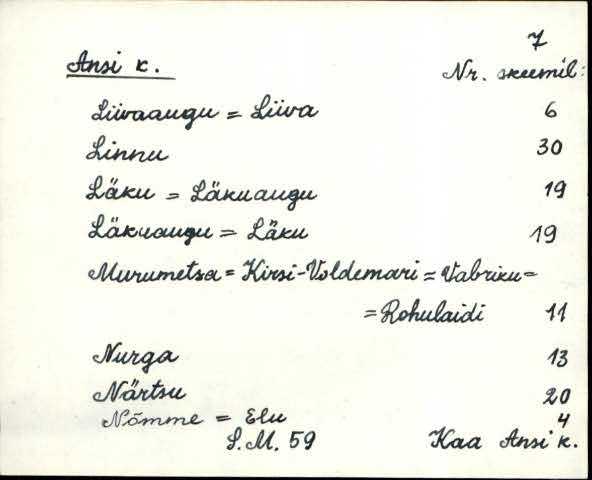 7
Ansi k. Nr. skeemil:
Liivaaugu = Liiva 6
Linnu 30
Läku = Läkuaugu 19
Läkuaugu = Läku 19
Murumetsa = Kirsi-Voldemari = Vabriku =
= Rohulaidi 11
Nurga 13
Närtsu 20
Nõmme = Elu 4
S.M. 59 Kaa Ansi k.